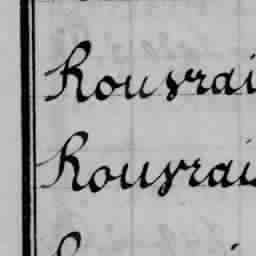 Rouvrai
Rouvrai